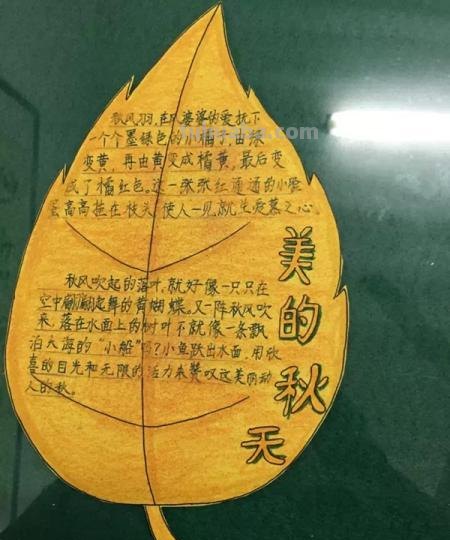 美的秋天
秋风羽,在风婆婆的爱抚下
一个个墨绿色的小橘子,由绿
变黄,再由黄变成橘黄,最后变
成了橘红色。这一张张红通通的小脸
蛋高高挂在枝头,使人一见就生爱慕之心。
秋风吹起的落叶,就好像一只只在
空中翩翩起舞的黄蝴蝶。又一阵秋风吹
来,落在水面上的树叶不就像一条飘
泊大海的“小船”吗?小鱼跃出水面,用欣
喜的目光和无限的活力来赞叹这美丽动
人的秋。